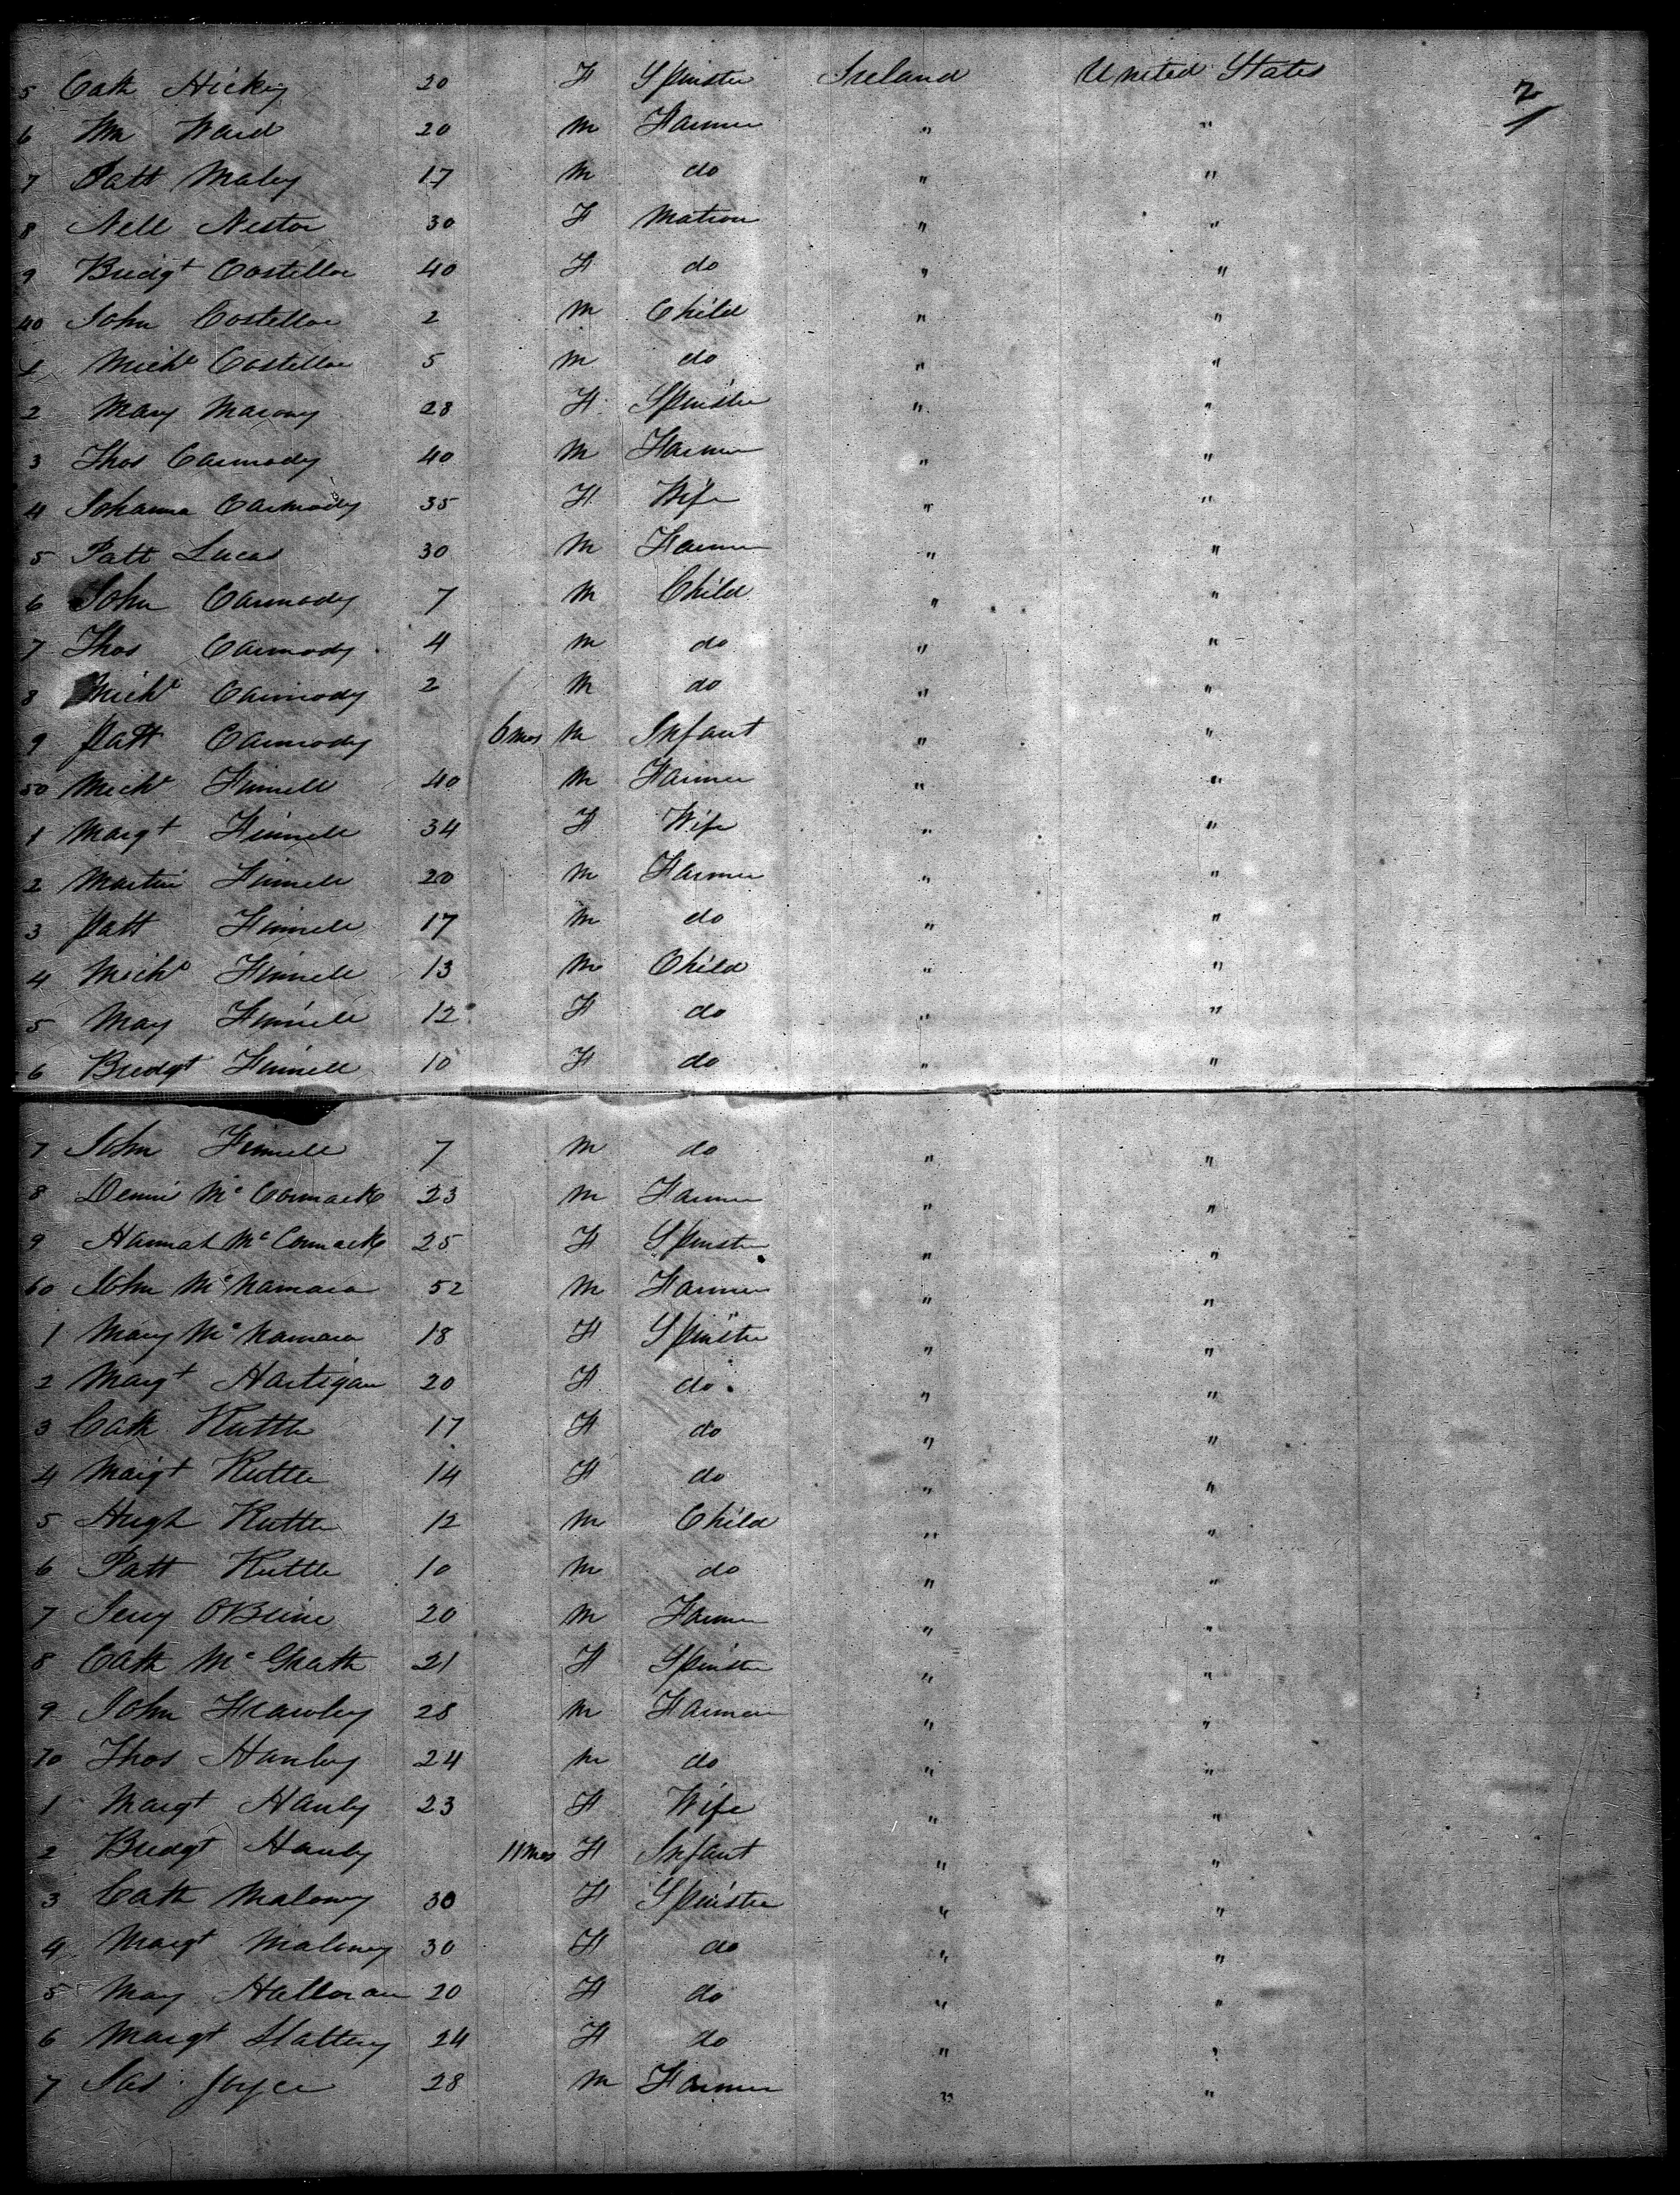 5 Cath Hickey 20 F Spinster Ireland United States 2
6 Wm Ward 20 M Farmer " "
7 Patt Maley 17 M do " "
8 Nell Nestor 30 F Matron " "
9 Bridgt Costelloe 40 F do " "
40 John Costelloe 2 M Child " "
1 Michl Costelloe 5 M do " "
2 Mary Marony 28 F Spinster " "
3 Thos Carmody 40 M Farmer " "
4 Johanna Carmody 35 F Wife " "
5 Patt Lucas 30 M Farmer " "
6 John Carmody 7 M Child " "
7 Thos Carmody 4 M do " "
8 Michl Carmody 2 M do " "
9 Patt Carmody 6 mos M Infant " "
50 Michl Finnell 40 M Farmer " "
1 Margt Finnell 34 F Wife " "
2 Martin Finnell 20 M Farmer " "
3 Patt Finnell 17 M do " "
4 Michl Finnell 13 M Child " "
5 Mary Finnell 12 F do " "
6 Bridgt Finnell 10 F do " "
7 John Finnell 7 M do " "
8 Dennis McCormack 23 M Farmer " "
9 Hannah McCormack 25 F Spinster " "
60 John McNamara 52 M Farmer " "
1 Mary McNamara 18 F Spinster " "
2 Margt Hartigan 20 F do " "
3 Cath Ruttle 17 F do " "
4 Margt Ruttle 14 F do " "
5 Hugh Ruttle 12 M Child " "
6 Patt Ruttle 10 M do " "
7 Jerry OBrine 20 M Farmer " "
8 Cath McGrath 21 F Spinster " "
9 John Frawley 28 M Farmer " "
70 Thos Hanley 24 M do " "
1 Margt Hanly 23 F Wife " "
2 Bridgt Hanly 11 mos F Infant " "
3 Cath Malony 30 F Spinster " "
4 Margt Maloney 30 F do " "
5 Mary Halloran 20 F do " "
6 Margt Slattery 24 F do " "
7 Jas Joyce 28 M Farmer " "